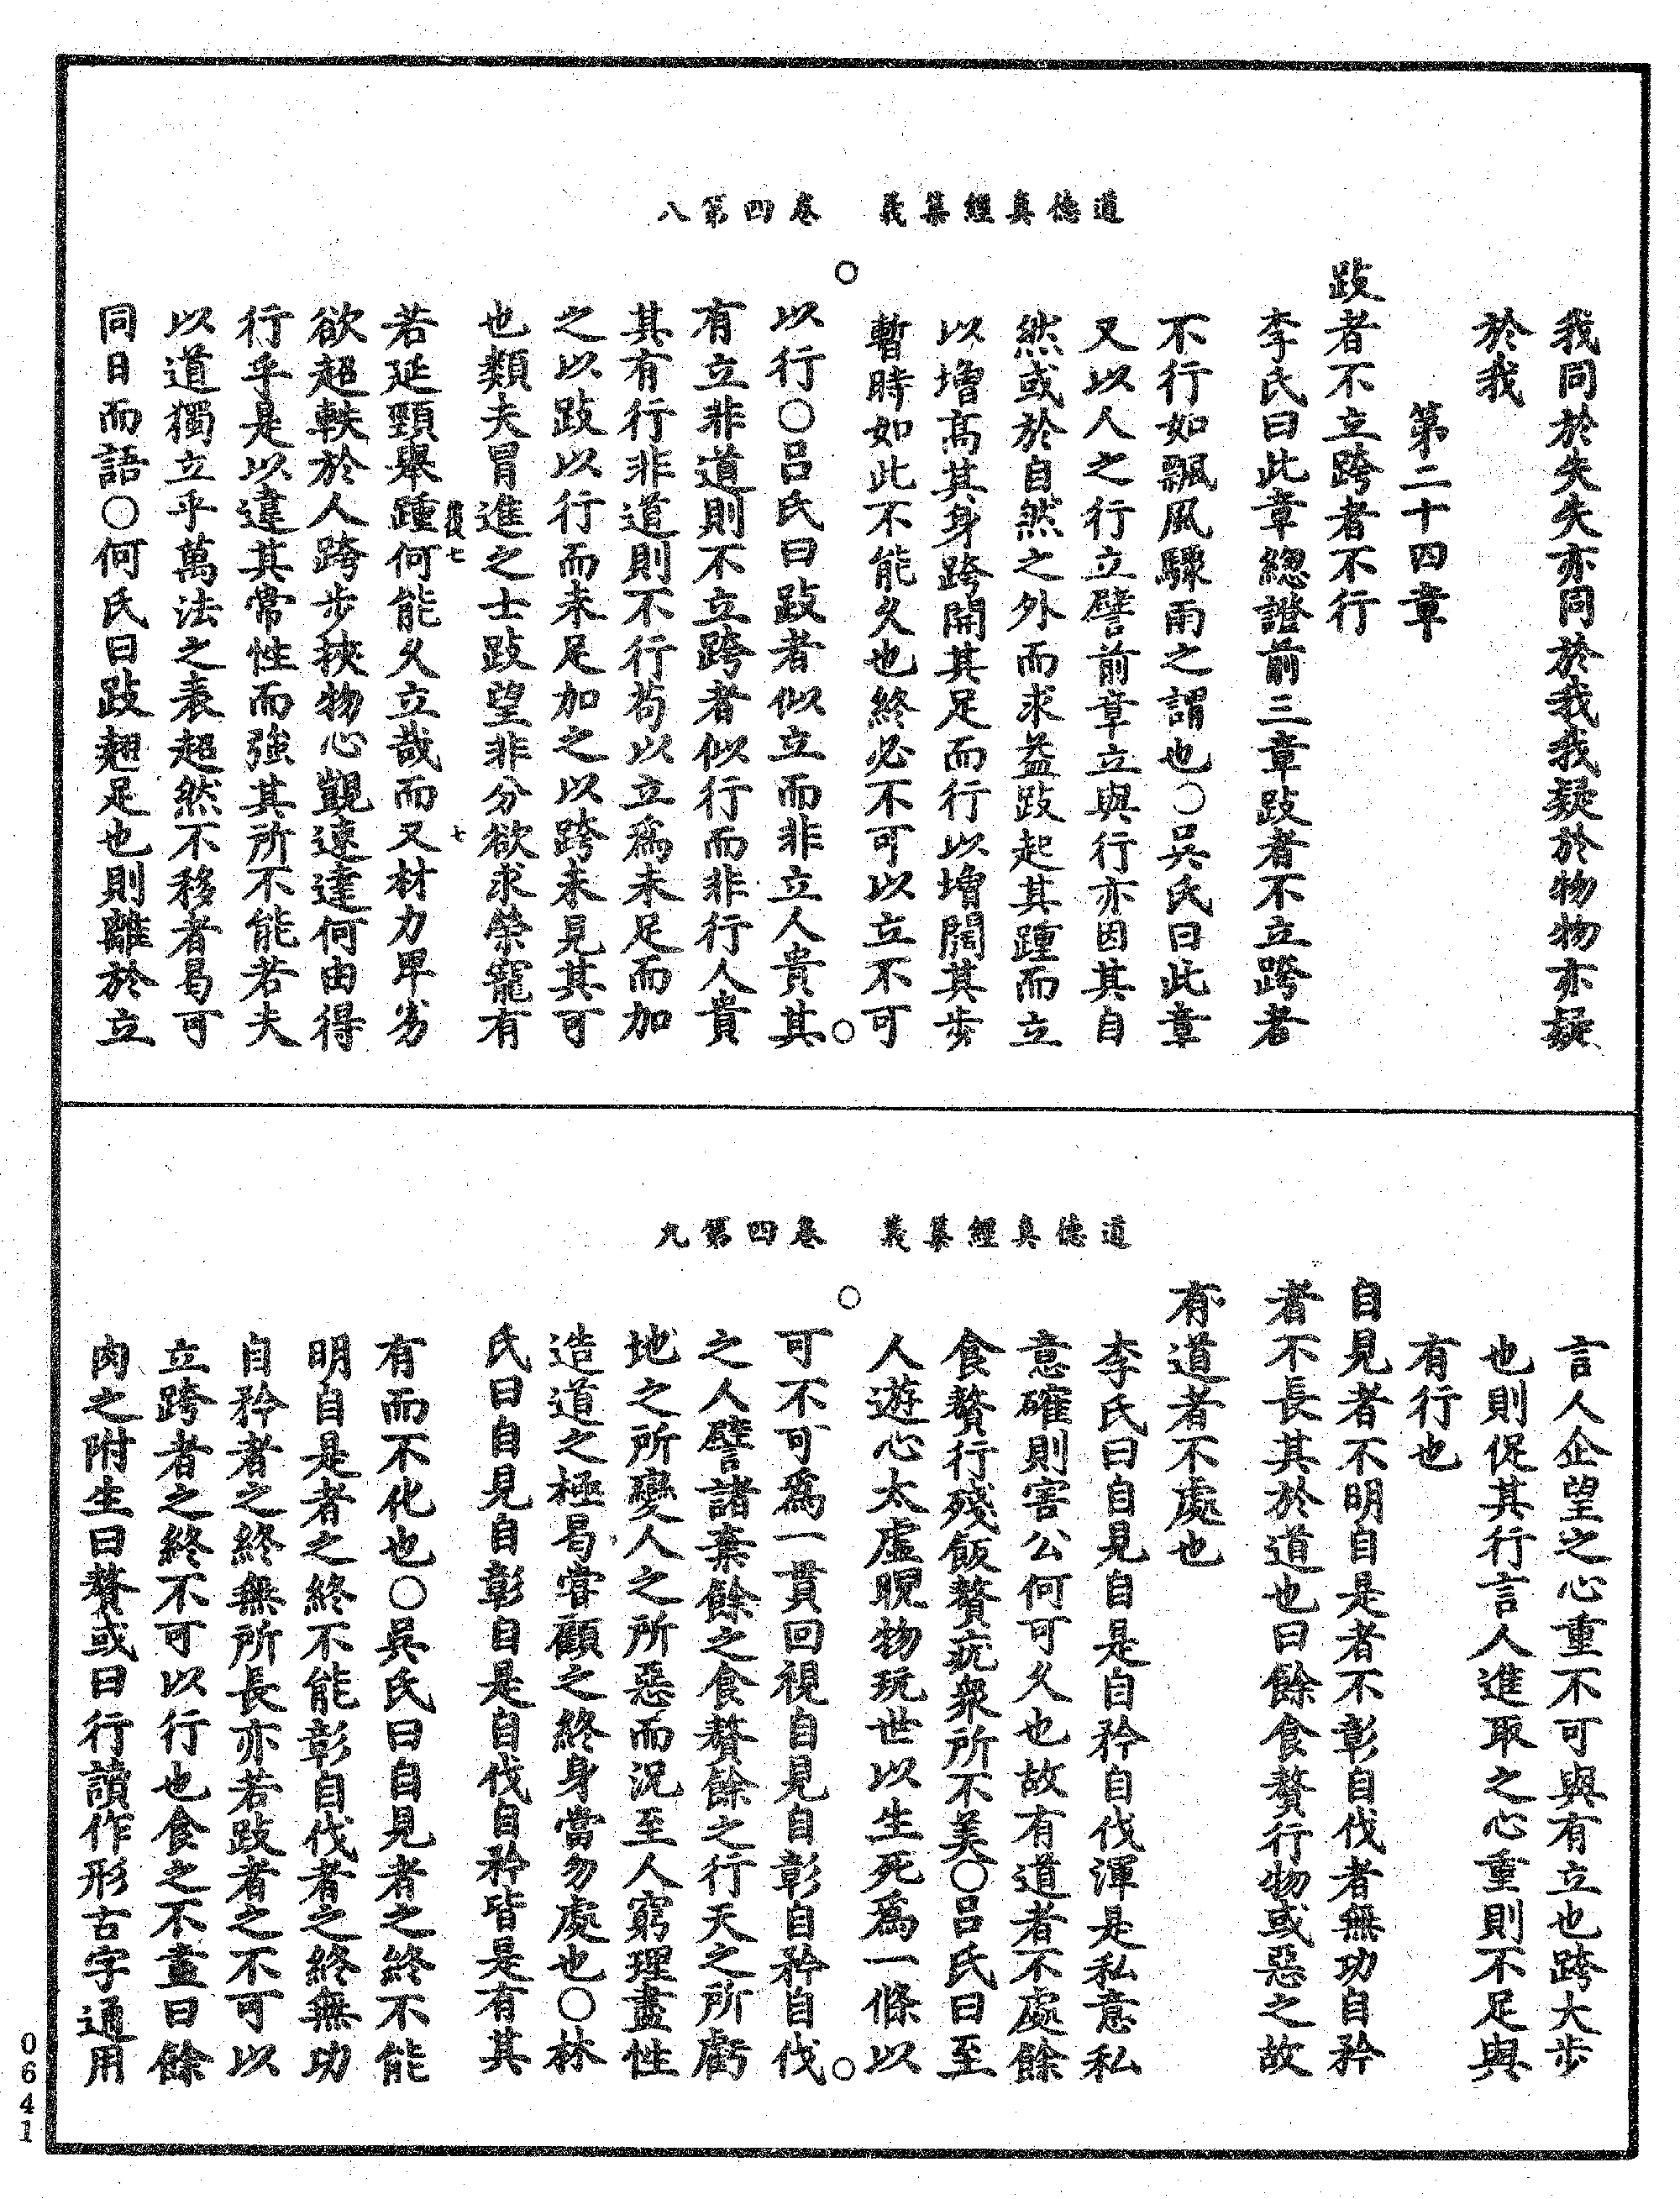 道德眞經集義　卷四第八
我同於失失亦同於我我疑於物物亦疑
於我
第二十四章
跂者不立跨者不行
李氏曰此章總證前三章跂者不立跨者
不行如飄風驟雨之謂也○吳氏曰此章
又以人之行立譬前章立與行亦因其自
然或於自然之外而求益跂起其踵而立
以增高其身跨開其足而行以增闊其步
暫時如此不能久也終必不可以立不可
以行○呂氏曰跂者似立而非立人貴其
有立非道則不立跨者似行而非行人貴
其有行非道則不行苟以立爲未足而加
之以跂以行而未足加之以跨未見其可
也類夫冒進之士跂望非分欲求榮寵有
若延頸舉踵何能久立哉而又材力卑劣
欲超軼於人跨步挾物心觀速達何由得
行乎是以違其常性而強其所不能若夫
以道獨立乎萬法之表超然不移者曷可
同日而語○何氏曰跂翹足也則離於立
七
七
道德眞經集義　卷四第九
言人企望之心重不可與有立也跨大步
也則促其行言人進取之心重則不足與
有行也
自見者不明自是者不彰自伐者無功自矜
者不長其於道也曰餘食贅行物或惡之故
有道者不處也
李氏曰自見自是自矜自伐渾是私意私
意確則害公何可久也故有道者不處餘
食贅行殘飯贅疣衆所不美○呂氏曰至
人遊心太虛睨物玩世以生死爲一條以
可不可爲一貫回視自見自彰自矜自伐
之人譬諸棄餘之食贅餘之行天之所虧
地之所變人之所惡而況至人窮理盡性
造道之極曷嘗顧之終身當勿處也○林
氏曰自見自彰自是自伐自矜皆是有其
有而不化也○吳氏曰自見者之終不能
明自是者之終不能彰自伐者之終無功
自矜者之終無所長亦若跂者之不可以
立跨者之終不可以行也食之不盡曰餘
肉之附生曰贅或曰行讀作形古字通用
0641